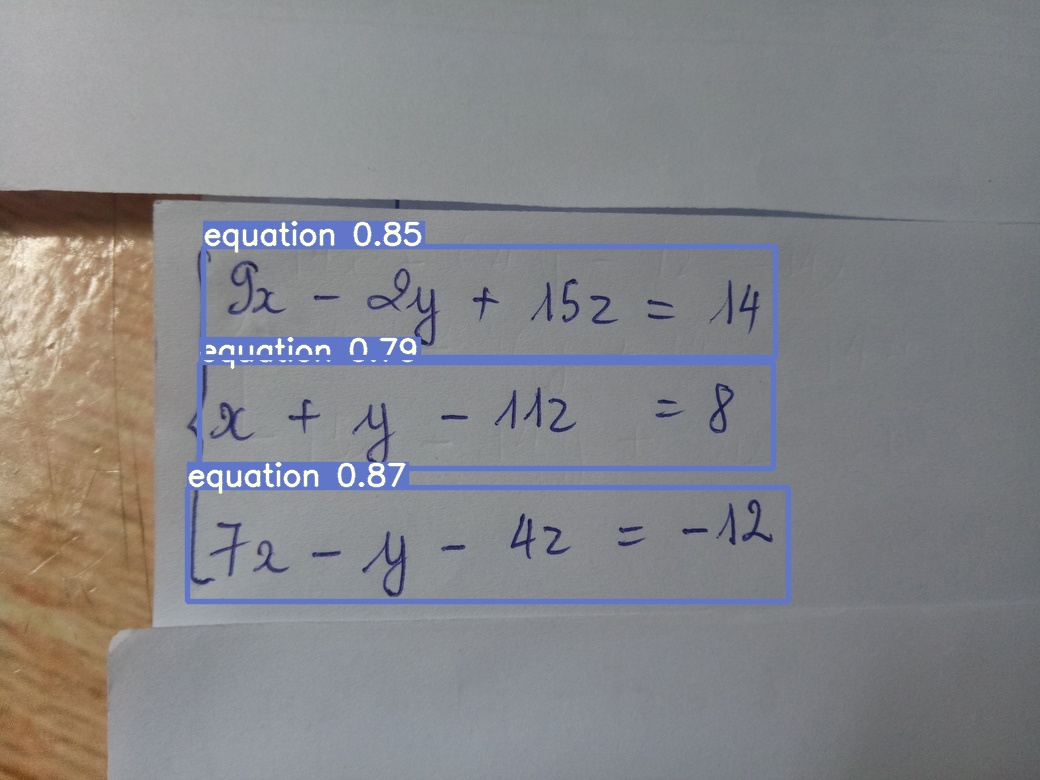 equation 0.85
9x - 2y + 15z = 14
equation 0.79
x + y - 11z = 8
equation 0.87
7x - y - 4z = -12